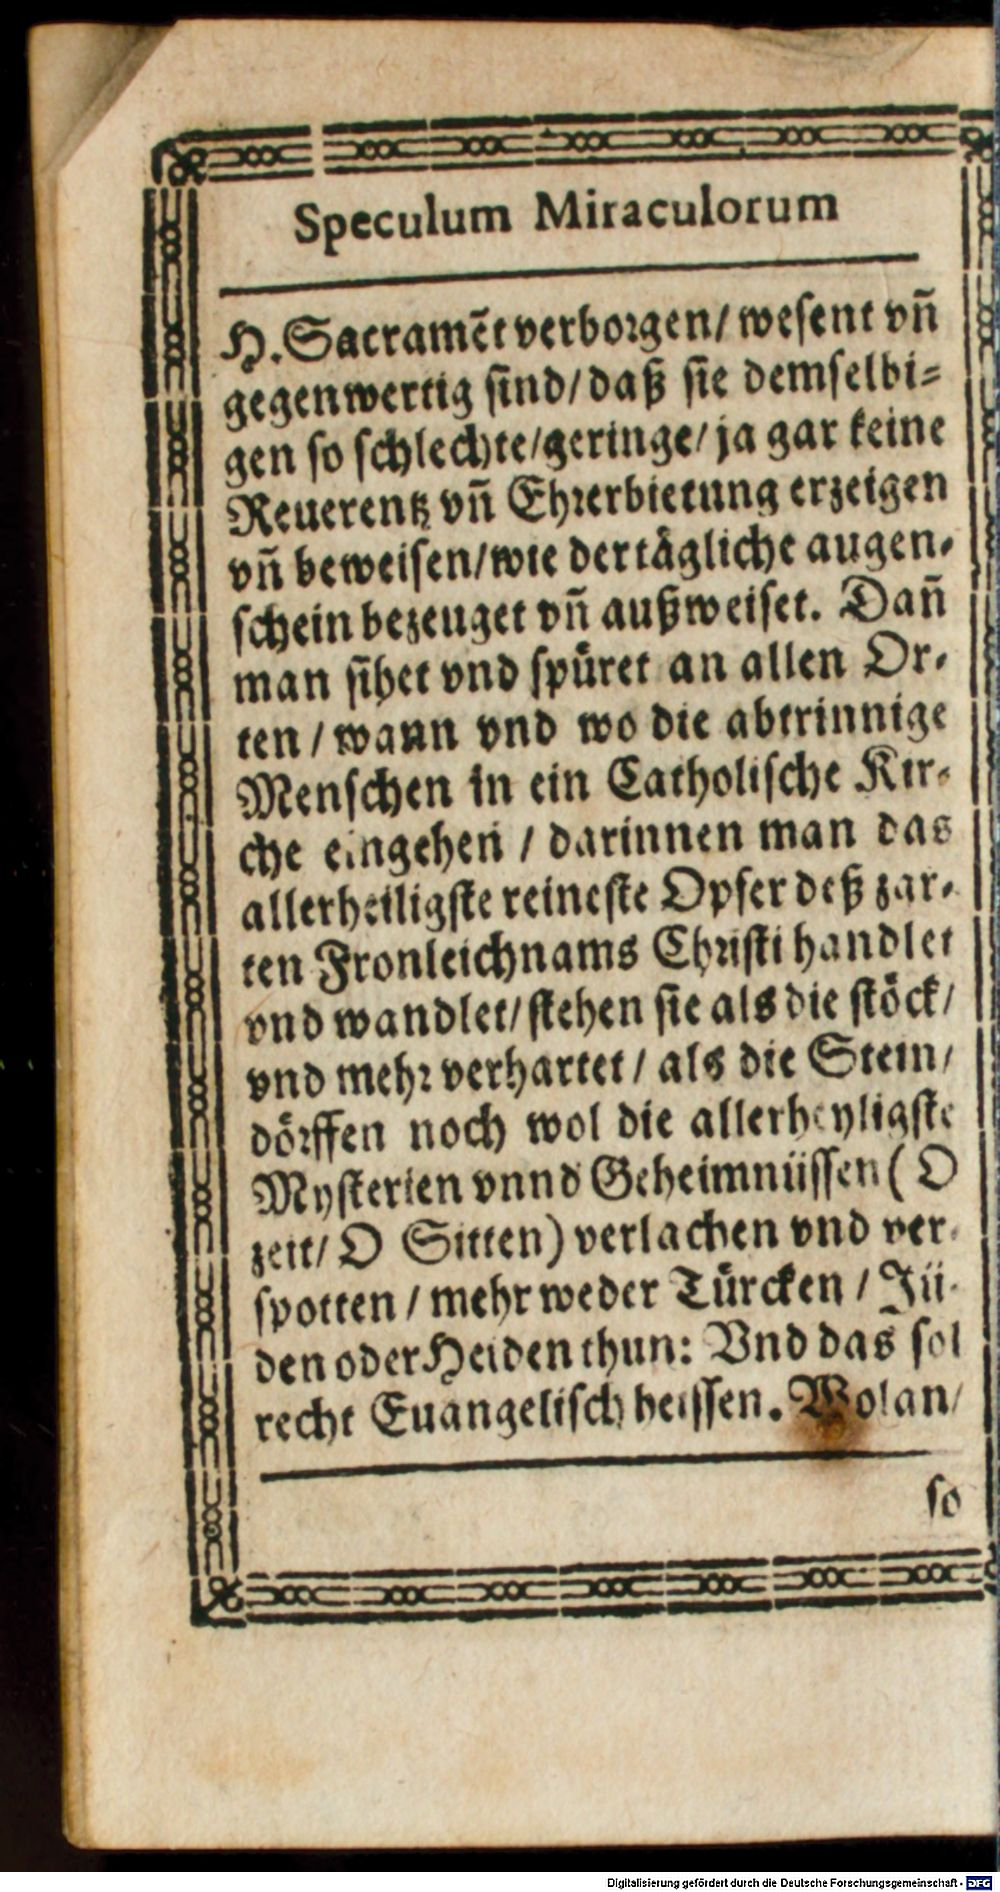 Speculum Miraculorum
H. Sacramẽt verborgen/ wesent vñ
gegenwertig sind/ daß sie demselbi-
gen so schlechte/ geringe/ ja gar keine
Reuerentz vñ Ehrerbietung erzeigen
vñ beweisen/ wie der tägliche augen-
schein bezeuget vñ außweiset. Dañ
man sihet vnd spüret an allen Or-
ten / wann vnd wo die abtrinnige
Menschen in ein Catholische Kir-
che eingehen / darinnen man das
allerheiligste reineste Opfer deß zar-
ten Fronleichnams Christi handlet
vnd wandlet/ stehen sie als die stöck/
vnd mehr verhartet / als die Stein/
dörffen noch wol die allerheyligste
Mysterien vnnd Geheimnüssen ( O
zeit/ O Sitten) verlachen vnd ver-
spotten / mehr weder Türcken / Jü-
den oder Heiden thun: Vnd das sol
recht Euangelisch heissen. Wolan/
so
Digitalisierung gefördert durch die Deutsche Forschungsgemeinschaft - DFG